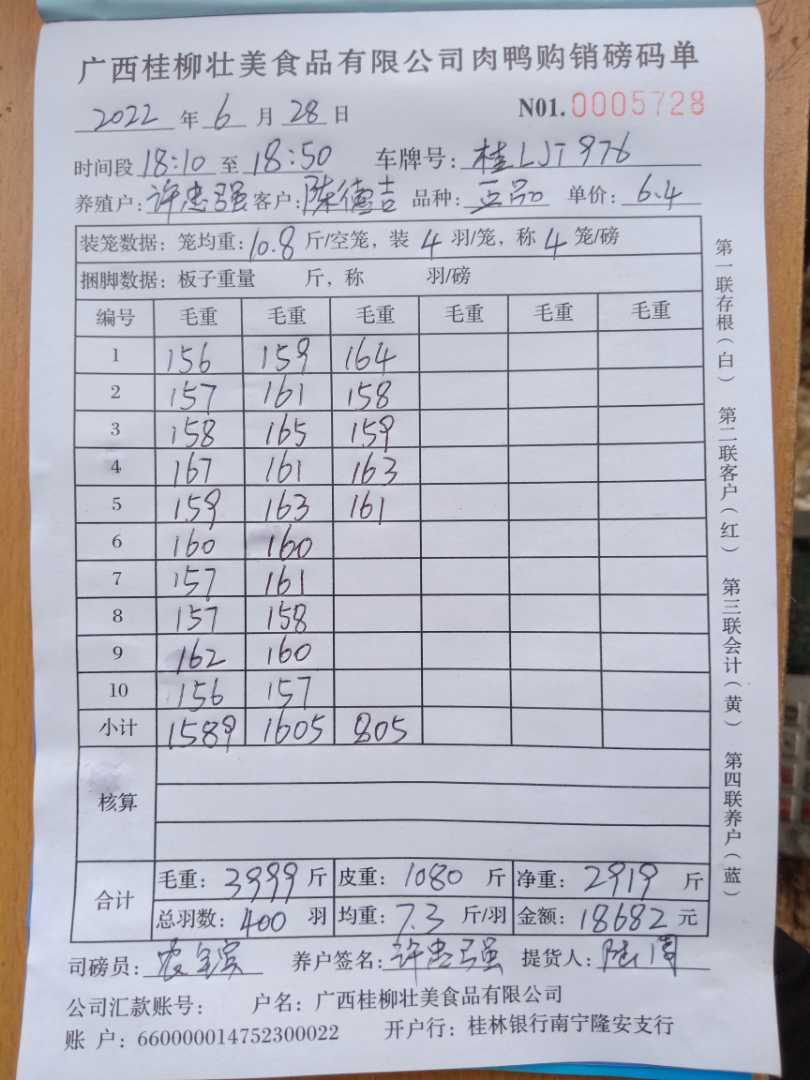 广西桂柳壮美食品有限公司肉鸭购销磅码单
2022 年 6 月 28 日 N01. 0005728
时间段 18:10 至 18:50 车牌号: 桂LJT976
养殖户: 许忠强 客户: 陈德吉 品种: 正品 单价: 6.4
装笼数据: 笼均重: 10.8 斤/空笼, 装 4 羽/笼, 称 4 笼/磅
捆脚数据: 板子重量 斤, 称 羽/磅
编号 毛重 毛重 毛重 毛重 毛重 毛重
1 156 159 164
2 157 161 158
3 158 165 159
4 167 161 163
5 159 163 161
6 160 160
7 157 161
8 157 158
9 162 160
10 156 157
小计 1589 1605 805
核算
合计 毛重: 3999 斤 皮重: 1080 斤 净重: 2919 斤
总羽数: 400 羽 均重: 7.3 斤/羽 金额: 18682 元
司磅员: 养户签名: 许忠强 提货人:
公司汇款账号: 户名: 广西桂柳壮美食品有限公司
账 户: 660000014752300022 开户行: 桂林银行南宁隆安支行
第一联存根(白) 第二联客户(红) 第三联会计(黄) 第四联养户(蓝)